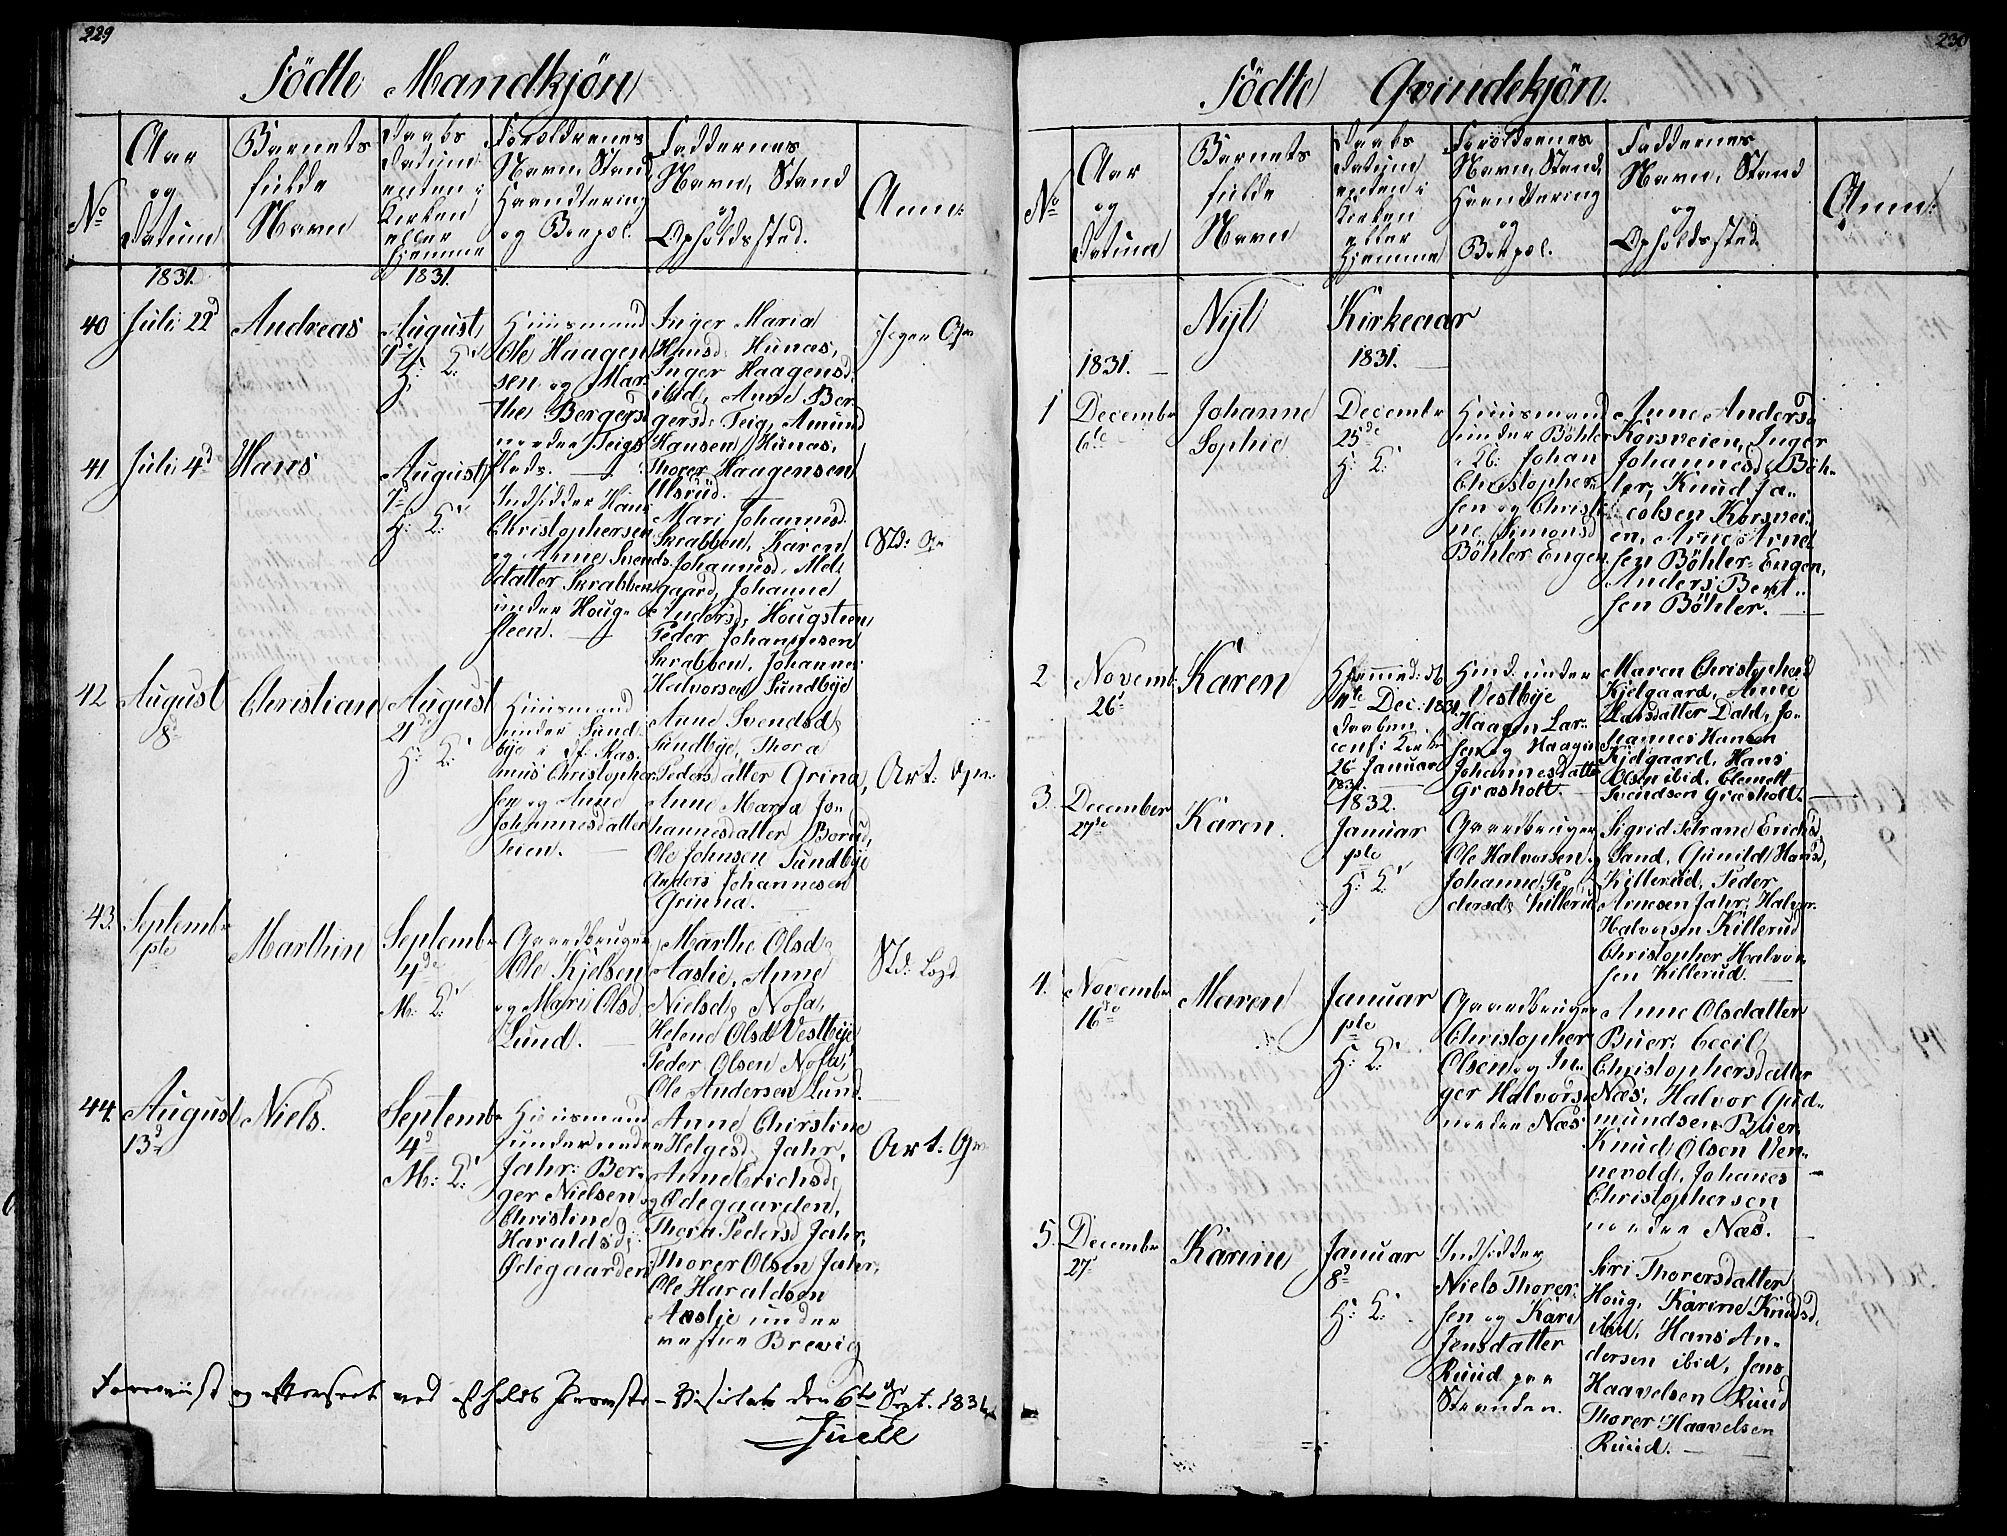 229
Födte Mandkjön
No
Aar
og
Datum
Barnets
fulde
Navn
Daabs
Datum
enten i
Kirken
eller
Hjemme
Foræeldrenes
Navn, Stand
Haandtering
og Boepæl.
Faddernes
Navn, Stand
og
Opholdssted.
Anm:
1831.
1831.
40
Juli 22d
Andreas
August
H: K:
Huusmand
Ole Haagen
sen og Mar
the Bergers
nordre Teigs
Plads.
Inger Maria
Hansd: Hunas,
Inger Haagensd:
ibid, Anne Ber
gersd: Teig, Amund
Hansen Hunas,
Thorer Haagensen
Ulsrud.
41
Juli 4d
Hans
August
7d
H: K:
Indsidder Hans
Christophersen
og Anne Svends
datter Skrabben
under Houg-
steen.
Mari Johannesd.
Skrabben, Karen
Johannesd. Mel
gaard, Johanne
Andersd, Hougsteen
Peder Johannesen
Skrabben, Johannes
Halvorsen Sundbye
42
August
8d
Christian
August
21de
H: K:
Huusmand
under Sund
bye Ras
mus Christopher
sen og Anne
Johannesdatter
Teien.
Anne Svendsd
Sundbye, Thora
Pedersdatter Grina,
Anne Maria Jo-
hannesdatter Borud,
Ole Johnsen Sundbye
Anders Johannesen
Grinna.
43.
Septembr
1ste
Marthin
Septembr
4de
M: K:
Gaardbruger
Ole Kjelsen
og Mari Olsd.
Lund.
Marthe Olsd
Aaslie, Anne
Nielsd, Nosa,
Helene Olsd Vestbye
Peder Olsen Nosa,
Ole Andersen Lund.
44.
August
13d
Niels.
Septembr
4d
M: K:
Huusmand
under nedre
Jahr: Ber-
ger Nielsen og
Christine
Haraldsd:
Ødegaarden
Anne Christine
Helgesd, Jahr,
Anne Erichsd,
Ødegaarden,
Thora Pedersd Jahr,
Thorer Olsen Jahr,
Ole Haraldsen
Aaslie under
vestre Brevig
ved Provste-Visitats den 6te Sept. 1831
Juell
230
Födte Qvindekjön.
No
Aar
og
Datum
Barnets
fulde
Navn
Daabs
Datum
enten i
Kirken
eller
Hjemme
Forældrenes
Navn, Stand,
Haandtering
og
Boepæl.
Faddernes
Navn, Stand
og
Opholdssted
Anm:
Nyt Kirkeaar
1831.
1831.
1
Decembr
6te
Johanne
Sophie
Decembr
25de
H: K:
Huusmand
under Böhler
Johan
Christopher
sen og Christi
ne Simonsd
Böhler Engen
Anne Andersd
Korsveien, Inger
Johannesd: Böh-
ler, Knud Ja-
cobsen Korsvei-
en, Arne Arne
sen Böhler-Engen,
Anders Bert-
sen Böhler.
2
Novemb.
26d
Karen
Hjemmed:
11te Dec: 1831.
Daaben
conf: i Kirke
26 Januar
1831.
under
Vestbye
Haagen Lar-
sen og Haagine
Johannesdatter
Græsholt
Maren Christophersd
Kjelgaard, Anne
Hansdatter Dald, Jo-
hannes Hansen
Kjelgaard, Hans
Olsen ibid, Clemett
Svendsen Græsholt.
3.
December
27de
Karen.
1832.
Januar
1ste
H: K:
Gaardbruger
Ole Halvorsen og
Johanne Pe
dersd: Killerud
Sigrid Sirane Erichsd
Sand, Gunild Hansd,
Killerud, Peder
Arnesen Jahr, Halvor
Halvorsen Killerud
Christopher Halvor
sen Killerud.
4.
Novembr
16de
Maren
Januar
1ste
H: K:
Gaardbruger
Christopher
Olsen og In-
ger Halvorsd
nordre Næs
Anne Olsdatter
Buer, Cecil
Christophersdatter
Næs, Halvor Gud-
mundsen Buer,
Knud Olsen Ven-
nevold, Johanes
Christophersen
nordre Næs.
5.
Decembr
27.
Karine
Januar
8d
H: K:
Indsidder
Niels Thorer-
sen og Kari
Jensdatter
Ruud paa
Stranden.
Siri Thorersdatter
Houg, Karine Knudsd,
ibid, Hans An-
dersen ibid, Jens
Haavelsen Ruud
Thorer Haavelsen
Ruud.